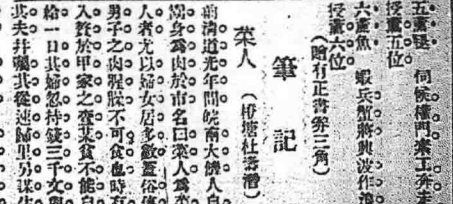 五薰 伺候權門來工奔走
授薰五位
六薰魚 蝦兵蟹將興波作浪
授薰六位
(贈有正書券三角)
筆記
菜人 (塘杜壽潛)
前清道光年間皖南大饑人自
鬻身為肉於市名曰菜人為菜
人者尤以婦女居多數蓋俗傳
男子之肉腥臊不可食也時有
入贅於甲家之查某貧不能自
給一日其婦忽持錢三千文與
其夫并囑其從速歸里另謀生